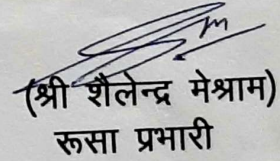 (श्री शैलेन्द्र मेश्राम)
रूसा प्रभारी